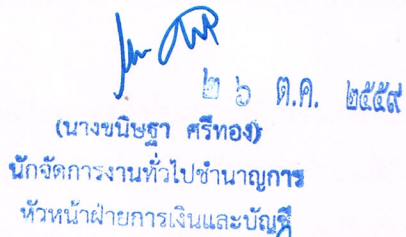 ๒๖ ต.ค. ๒๕๕๙
(นางขนิษฐา ศรีทอง)
นักจัดการงานทั่วไปชำนาญการ
หัวหน้าฝ่ายการเงินและบัญชี